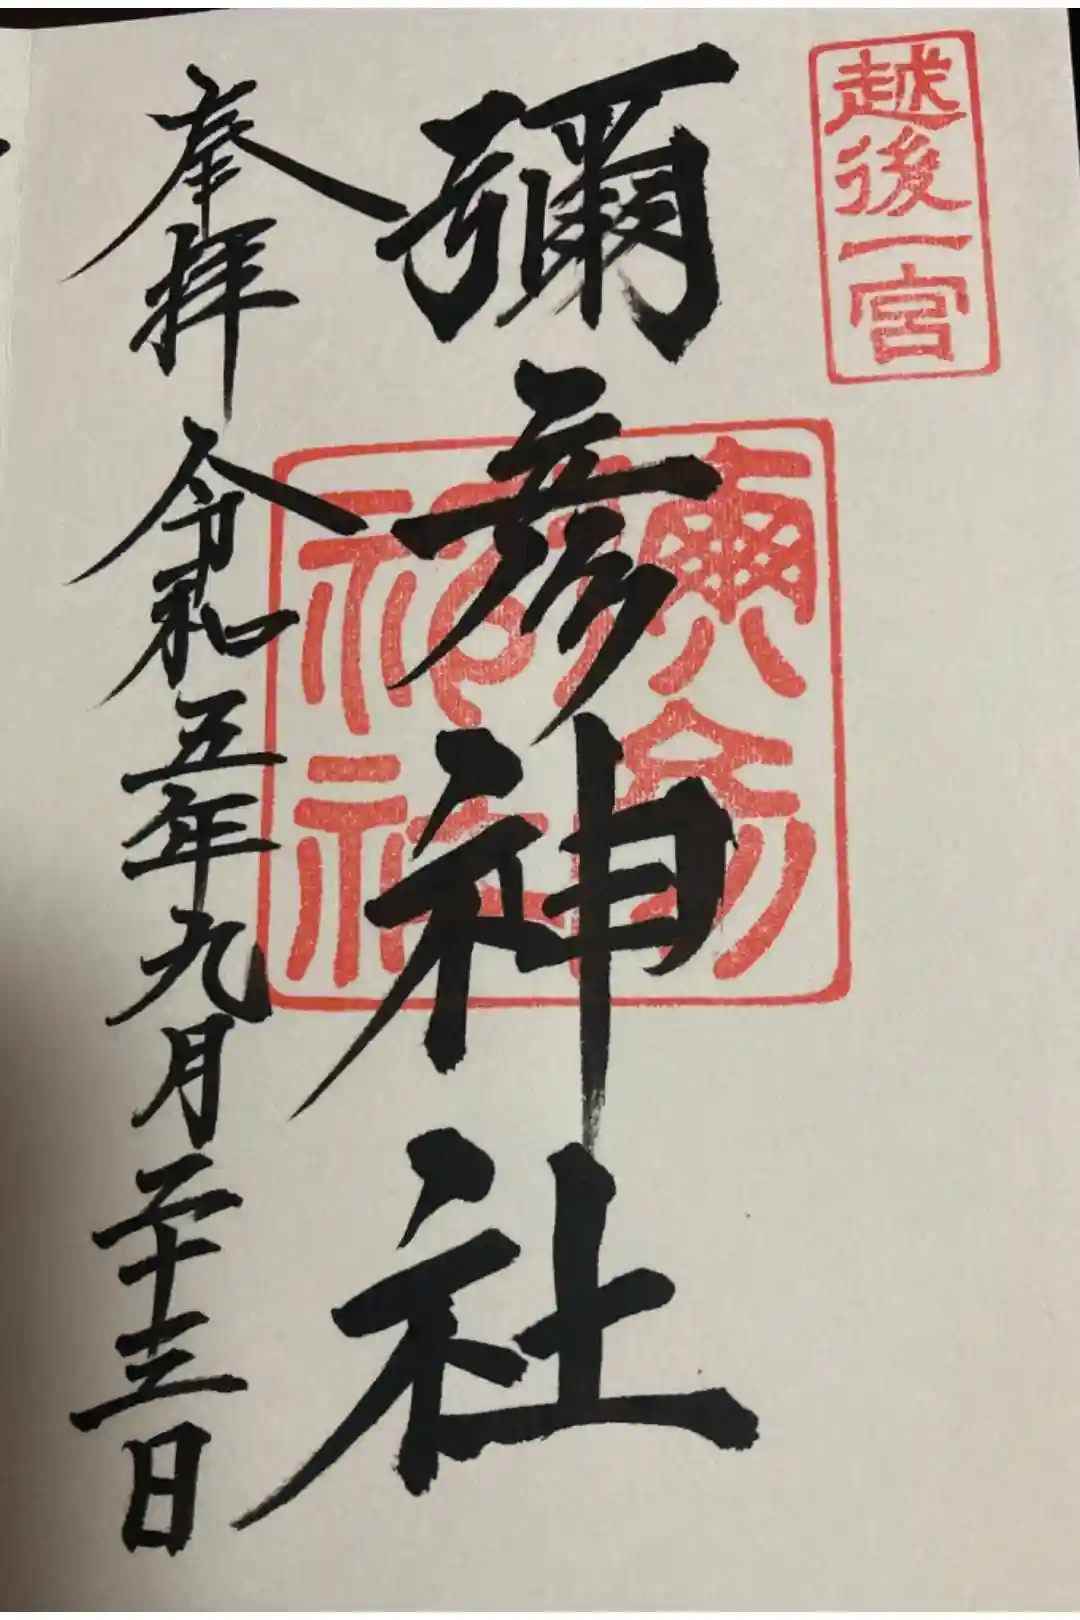 越後一宮
彌彦神社
奉拝
令和五年九月二十三日